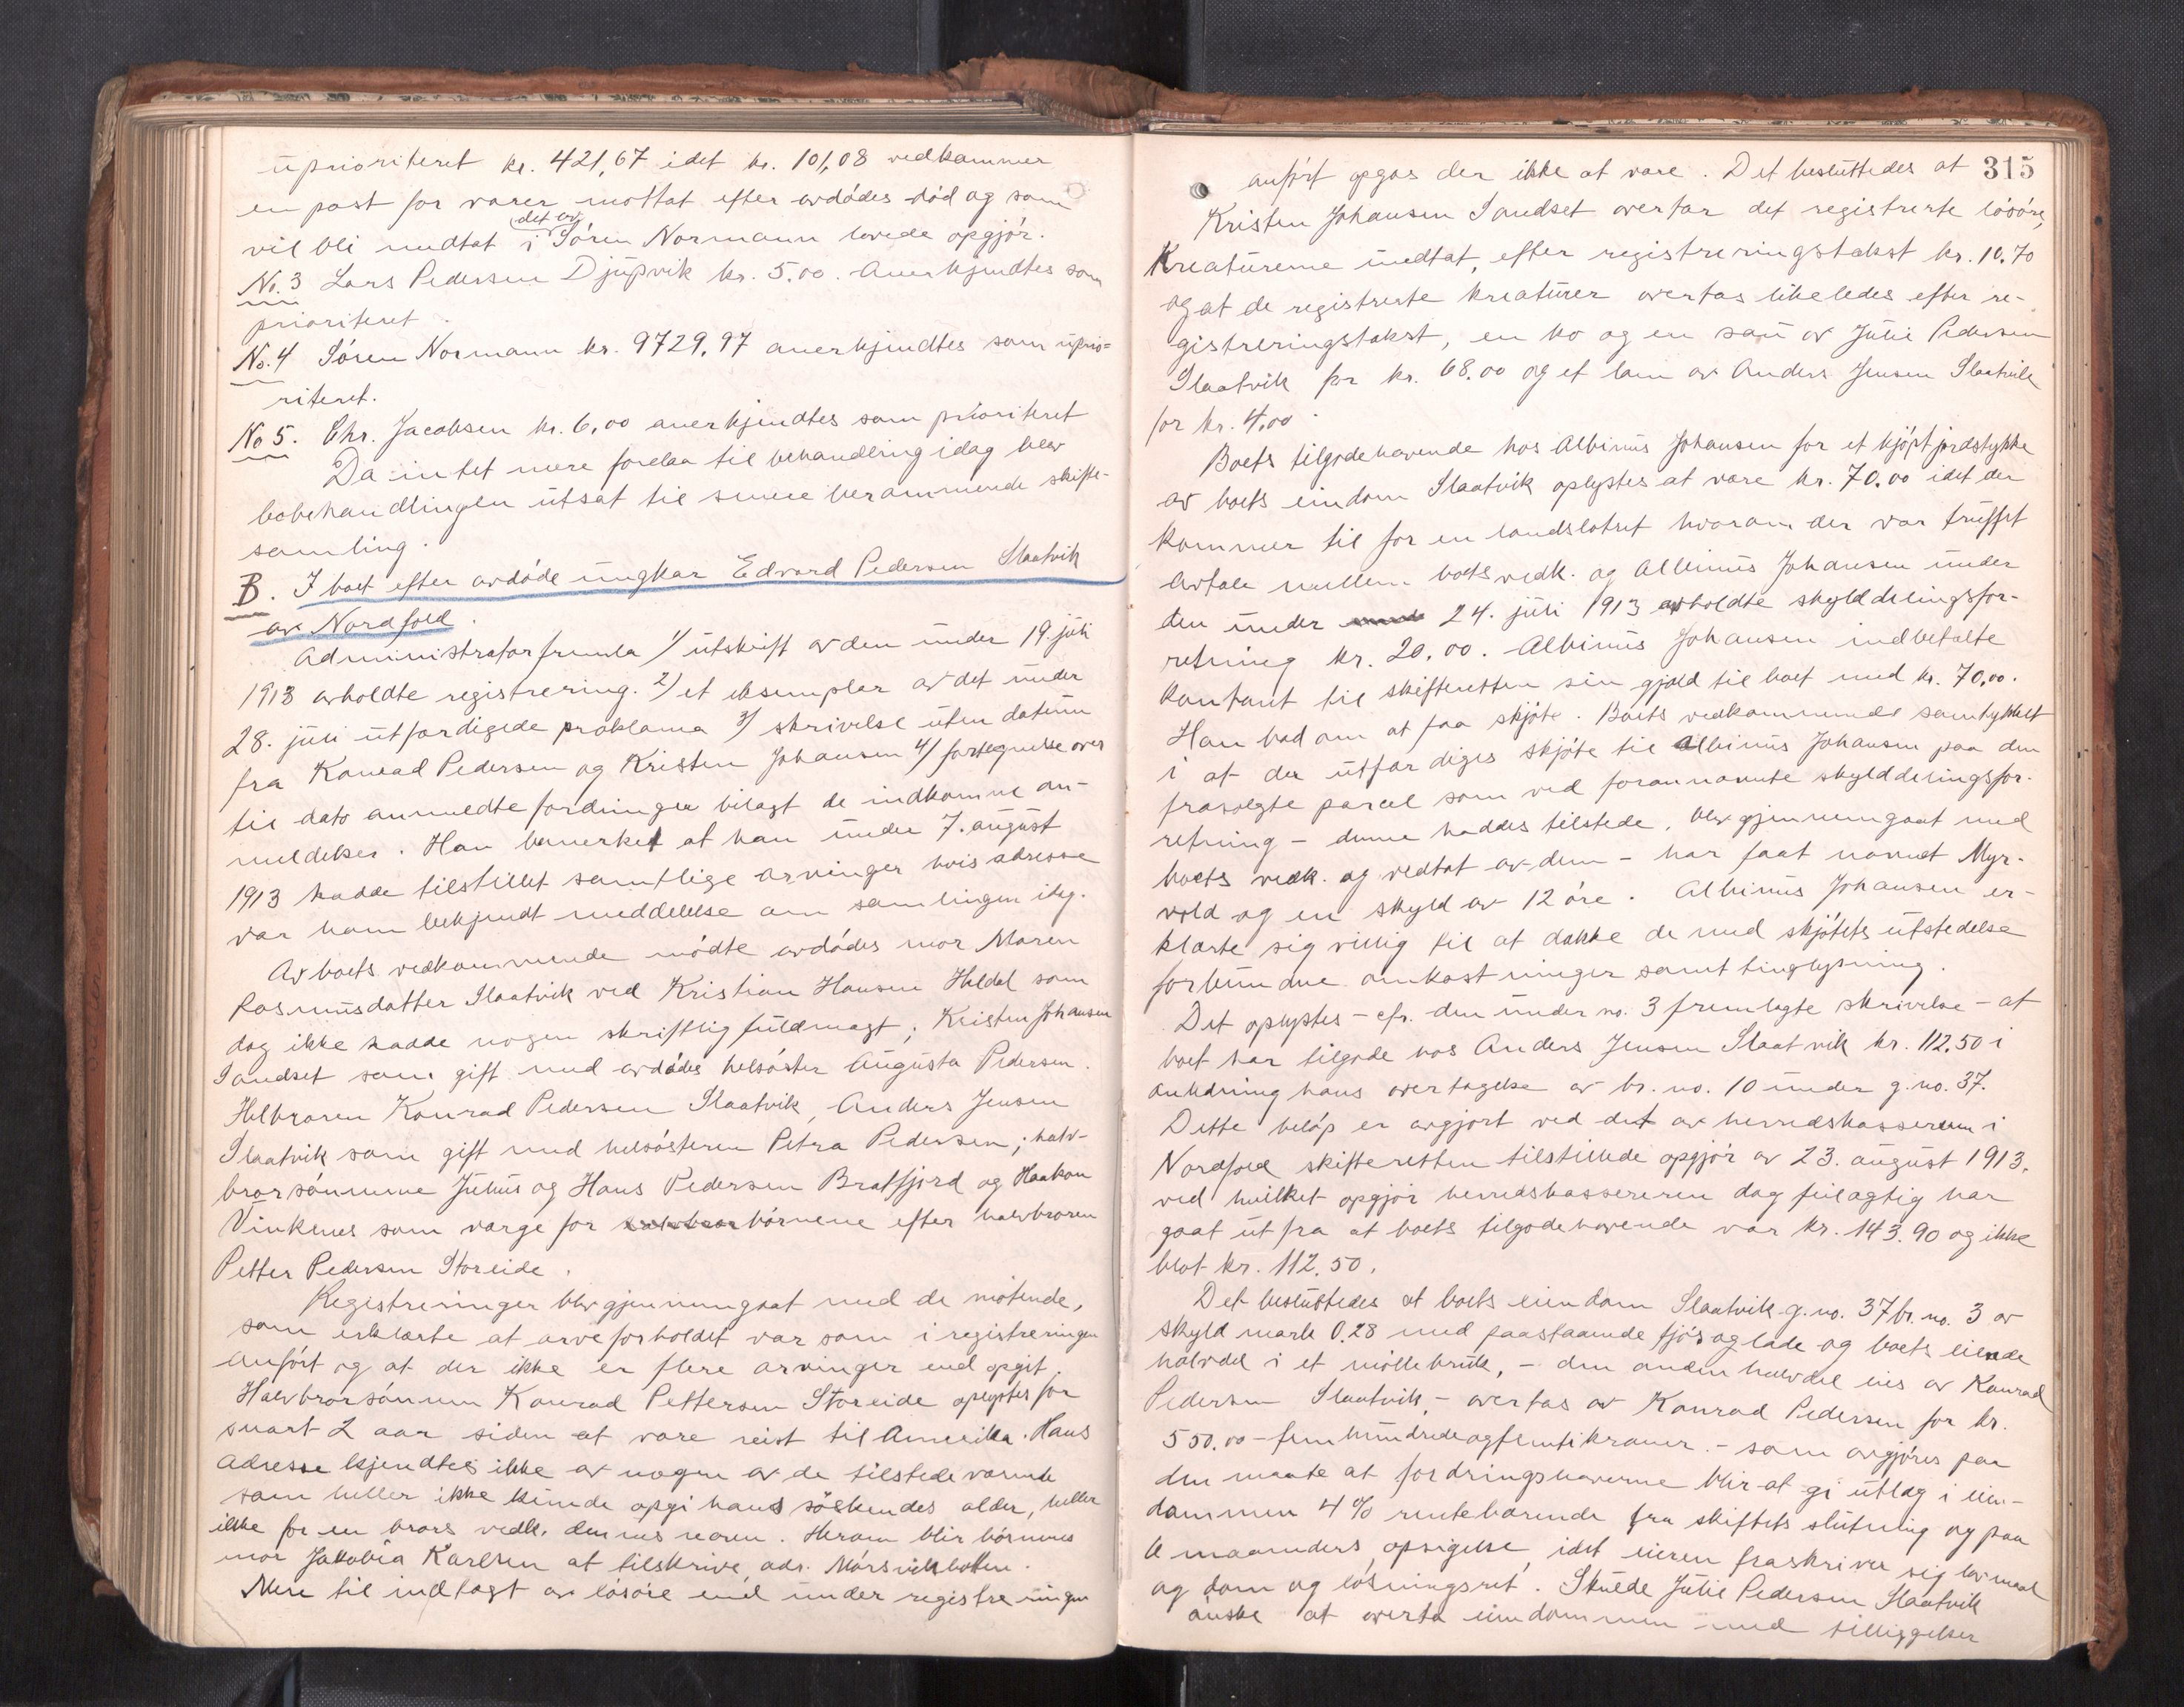 uprioriteret kr. 421,67 idet kr. 101,08 vedkommer
en post for varer mottat efter avdødes død og som
vil bli medtat i det av Søren Normann lovede opgjør.
No. 3 Lars Pedersen Djupvik kr. 5.00. Anerkjendtes som
prioriteret.
No. 4 Søren Normann kr. 9729,97 anerkjendtes som uprio-
riteret.
No 5. Chr. Jacobsen kr. 6,00 anerkjendtes som prioriteret
Da intet mere forelaa til behandling idag blev
bobehandlingen utsat til senere berammende skifte-
samling.
B. I boet efter avdøde ungkar Edvard Pedersen Slaatvik
av Nordfold.
Administrator fremla 1/ utskrift av den under 19. juli
1913 avholdte registrering. 2/ et eksemplar av det under
28. juli utfærdigede proklama 3/ skrivelse uten datum
fra Konrad Pedersen og Kristen Johansen 4/ fortegnelse over
til dato anmeldte fordringer bilagt de indkomne an-
meldelser. Han bemerket at han under 7. august
1913 hadde tilstillet samtlige arvinger hvis adresse
var ham bekjendt meddelelse om samlingen idag.
Av boets vedkommende mødte avdødes mor Maren
Rasmusdatter Slaatvik ved Kristian Hansen Heldal som
dog ikke hadde nogen skriftlig fuldmagt; Kristen Johansen
Sandset som gift med avdødes helsøster Augusta Pedersen.
Helbroren Konrad Pedersen Slaatvik, Anders Jensen
Slaatvik som gift med helsøsteren Petra Pedersen; halv-
brorsønnene Julius og Hans Pedersen Bratfjord og Haakon
Vinkenes som verge for børnene efter halvbroren
Petter Pedersen Storeide.
Registreringer blev gjennemgaat med de møtende,
som erklærte at arveforholdet var som i registreringen
anført og at der ikke er flere arvinger end opgit.
Halvbrorsønnen Konrad Pettersen Storeide oplystes for
snart 2 aar siden at være reist til Amerika. Hans
adresse kjendtes ikke av nogen av de tilstedeværende
som heller ikke kunde opgi hans søskendes alder, heller
ikke for en brors vedk. dennes navn. Herom blir børnenes
mor Jakobia Karlsen at tilskrive, adr. Mørsvikbotten.
Mere til indtægt av løsøre end under registreringen
315
anført opgas der ikke at være. Det besluttedes at
Kristen Johansen Sandset overtar det registrerte løsøre,
Kreaturene undtat, efter registreringstakst kr. 10.70
og at de registrerte kreaturer overtas likeledes efter re-
gistreringstakst, en ko og en sau av Julie Pedersen
Slaatvik for kr. 68.00 og et lam av Anders Jensen Slaatvik
for kr. 4,00.
Boets tilgodehavende hos Albinus Johansen for et kjøpt jordstykke
av boets eiendom Slaatvik oplystes at være kr. 70.00 idet der
kommer til for en landslotret hvorom der var truffet
avtale mellem boets vedk. og Albinus Johansen under
den under 24. juli 1913 avholdte skylddelingsfor-
retning kr. 20.00. Albinus Johansen indbetalte
kontant til skifteretten sin gjæld til boet med kr. 70,00.
Han bad om at faa skjøte. Boets vedkommende samtykket
i at der utfærdiges skjøte til Albinus Johansen paa den
frasolgte parcel som ved forannævnte skylddelingsfor-
retning – denne haddes tilstede, blev gjennemgaat med
boets vedk. og vedtat av dem – har faat navnet Myr-
vold og en skyld av 12 øre. Albinus Johansen er-
klærte sig villig til at dække de med skjøtets utstedelse
forbundne omkostninger samt tinglysning.
Det oplystes – cfr. den under no. 3 fremlagte skrivelse – at
boet har tilgode hos Anders Jensen Slaatvik kr. 112.50 i
anledning hans overtagelse av br. no. 10 under g. no. 37.
Dette beløp er avgjort ved det av herredskassereren i
Nordfold skifteretten tilstillede opgjør av 23. august 1913.
ved hvilket opgjør herredskassereren dog feilagtig har
gaat ut fra at boets tilgodehavende var kr. 143.90 og ikke
blot kr. 112.50.
Det besluttedes at boets eiendom Slaatvik g. no. 37 br. no. 3 av
skyld mark 0.28 med paastaaende fjøs og lade og boets eiende
halvdel i et møllebruk, – den anden halvdel eies av Konrad
Pedersen Slaatvik, – overtas av Konrad Pedersen for kr.
550.00 – femhundredeogfemtikroner. – som avgjøres paa
den maate at fordringshaverne blir at gi utlæg i eien-
dommen 4 % rentebærende fra skiftets slutning og paa
6 maaneders opsigelse, idet eieren fraskriver sig lovmaal
og dom og løsningsret. Skulde Julie Pedersen Slaatvik
ønske at overta eiendommen med tilliggelser